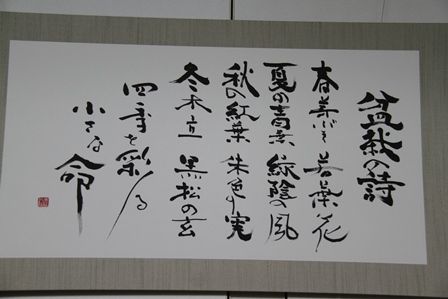 盆栽の詩
春芽ぶき 若葉花
夏の青 緑陰の風
秋の紅葉 朱色の実
冬木立 黒松の玄
四季を彩る
小さな命